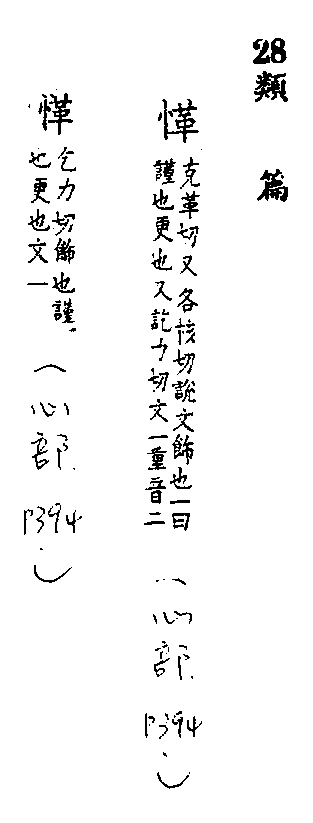 28類 篇
愅
克革切又各核切說文飾也一曰
謹也更也又訖力切文一重音二
(心部 P394.)
愅
乞力切飾也謹
也更也文一
(心部 P394.)